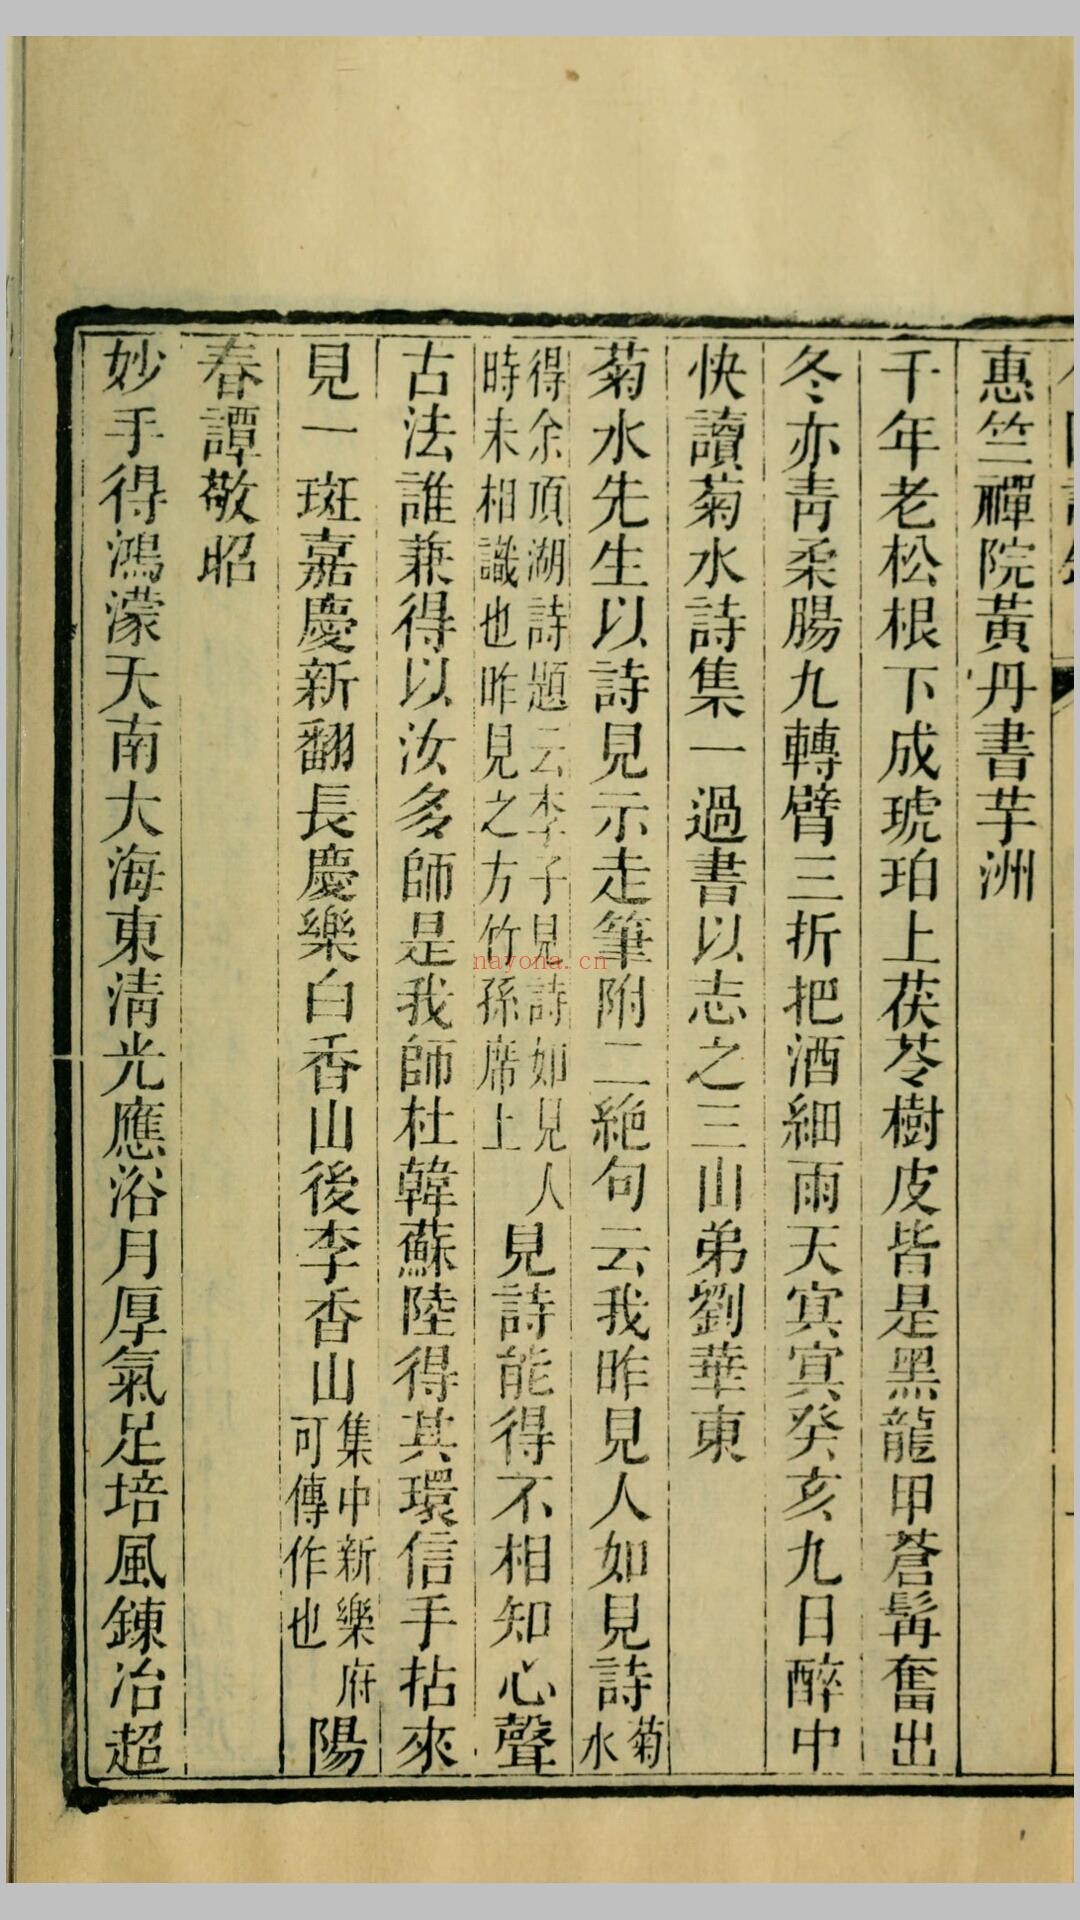 惠竺禪院黃丹書芋洲
千年老松根下成琥珀上茯苓樹皮皆是黑龍甲蒼髯奮出
冬亦青柔腸九轉臂三折把酒細雨天寅寅癸亥九日醉中
快讀菊水詩集一過書以志之三山弟劉華東
菊水先生以詩見示走筆附二絕句云我昨見人如見詩菊水
得余頂湖詩題云李子見詩如見人
時未相識也昨見之方竹孫席上
見詩能得不相知心聲
古法誰兼得以汝多師是我師杜韓蘇陸得其環信手拈來
見一斑嘉慶新翻長慶樂白香山後李香山
集中新樂府
可傳作也
陽
春譚敬昭
妙手得鴻濛天南大海東淸光應浴月厚氣足培風鍊冶超
nayona.cn